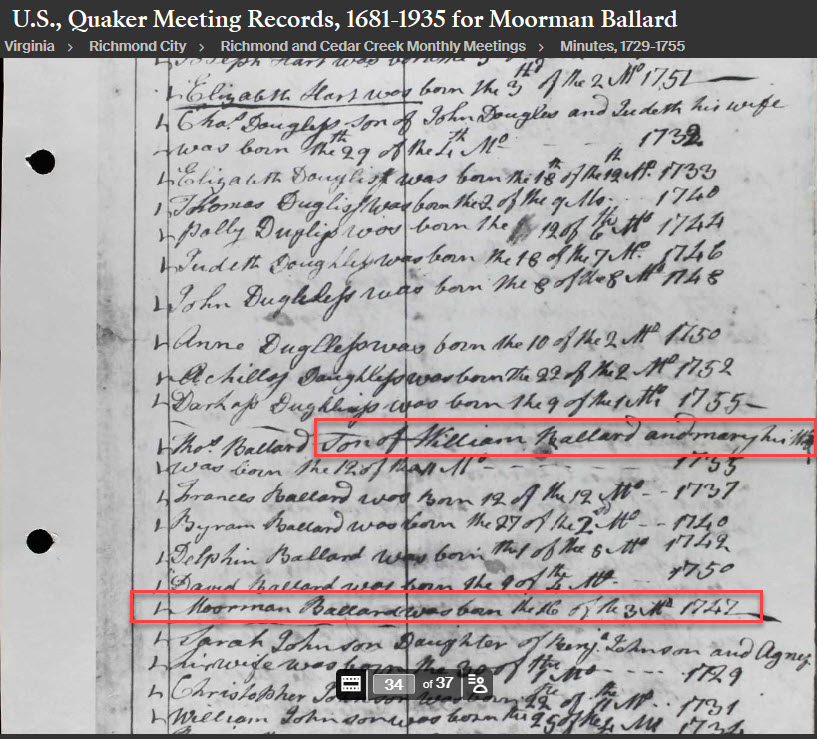 U.S., Quaker Meeting Records, 1681-1935 for Moorman Ballard
Virginia > Richmond City > Richmond and Cedar Creek Monthly Meetings > Minutes, 1729-1755
Joseph Hart was born the
Elizabeth Hart was born the 3th of the 2 Mo 1751
Chas. Douglass Son of John Douglas and Judeth his wife
was born the 29th of the 4th Mo 1732
Elizabeth was born the 18th of the 12th Mo. 1733
Thomas was born the 2 of the 9 Mo. 1740
was born the 12 of 6th Mo 1744
Judeth was born the 18 of the 7 Mo. 1746
John was born the 8 of the 8 Mo 1748
Anne was born the 10 of the 2 Mo 1750
Achillos was born the 22 of the 2 Mo 1752
was born the 9 of the 1 Mo 1755
Thos. Ballard Son of William Ballard and mary his
was born the 12 of the 11 Mo 1735
Frances Ballard was Born 12 of the 12 Mo 1737
Byram Ballard was born the 27 of the 2nd Mo 1740
Delphin Ballard was born the 1 of the 8 Mo 1742
David Ballard was born the 9 of the 4 Mo 1750
Moorman Ballard was born the 16 of the 3 Mo 1747
Sarah Johnson Daughter of Benja. Johnson and Agnes
his wife was born the 30 of the 1 Mo 1729
Christopher Johnson was born 22 of the 11 Mo. 1731
William Johnson was born the 25 of the 4 Mo
34 of 37